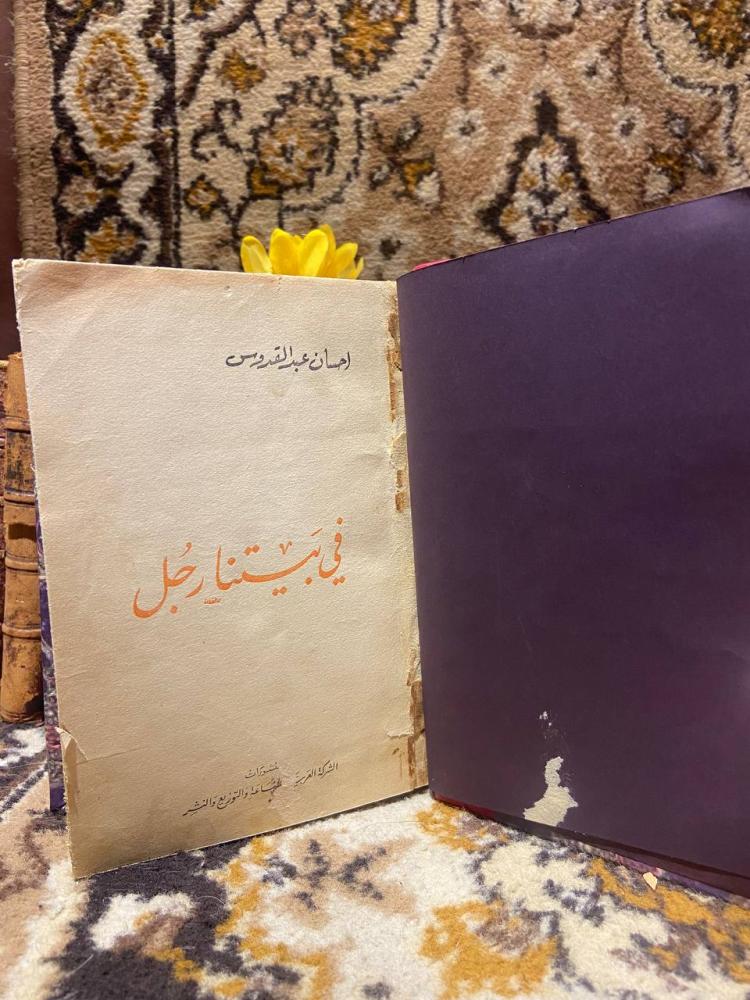 احسان عبد القدوس
في بَيتنا رجُل
منشورات
الشركة العربية للطباعة والتوزيع والنشر